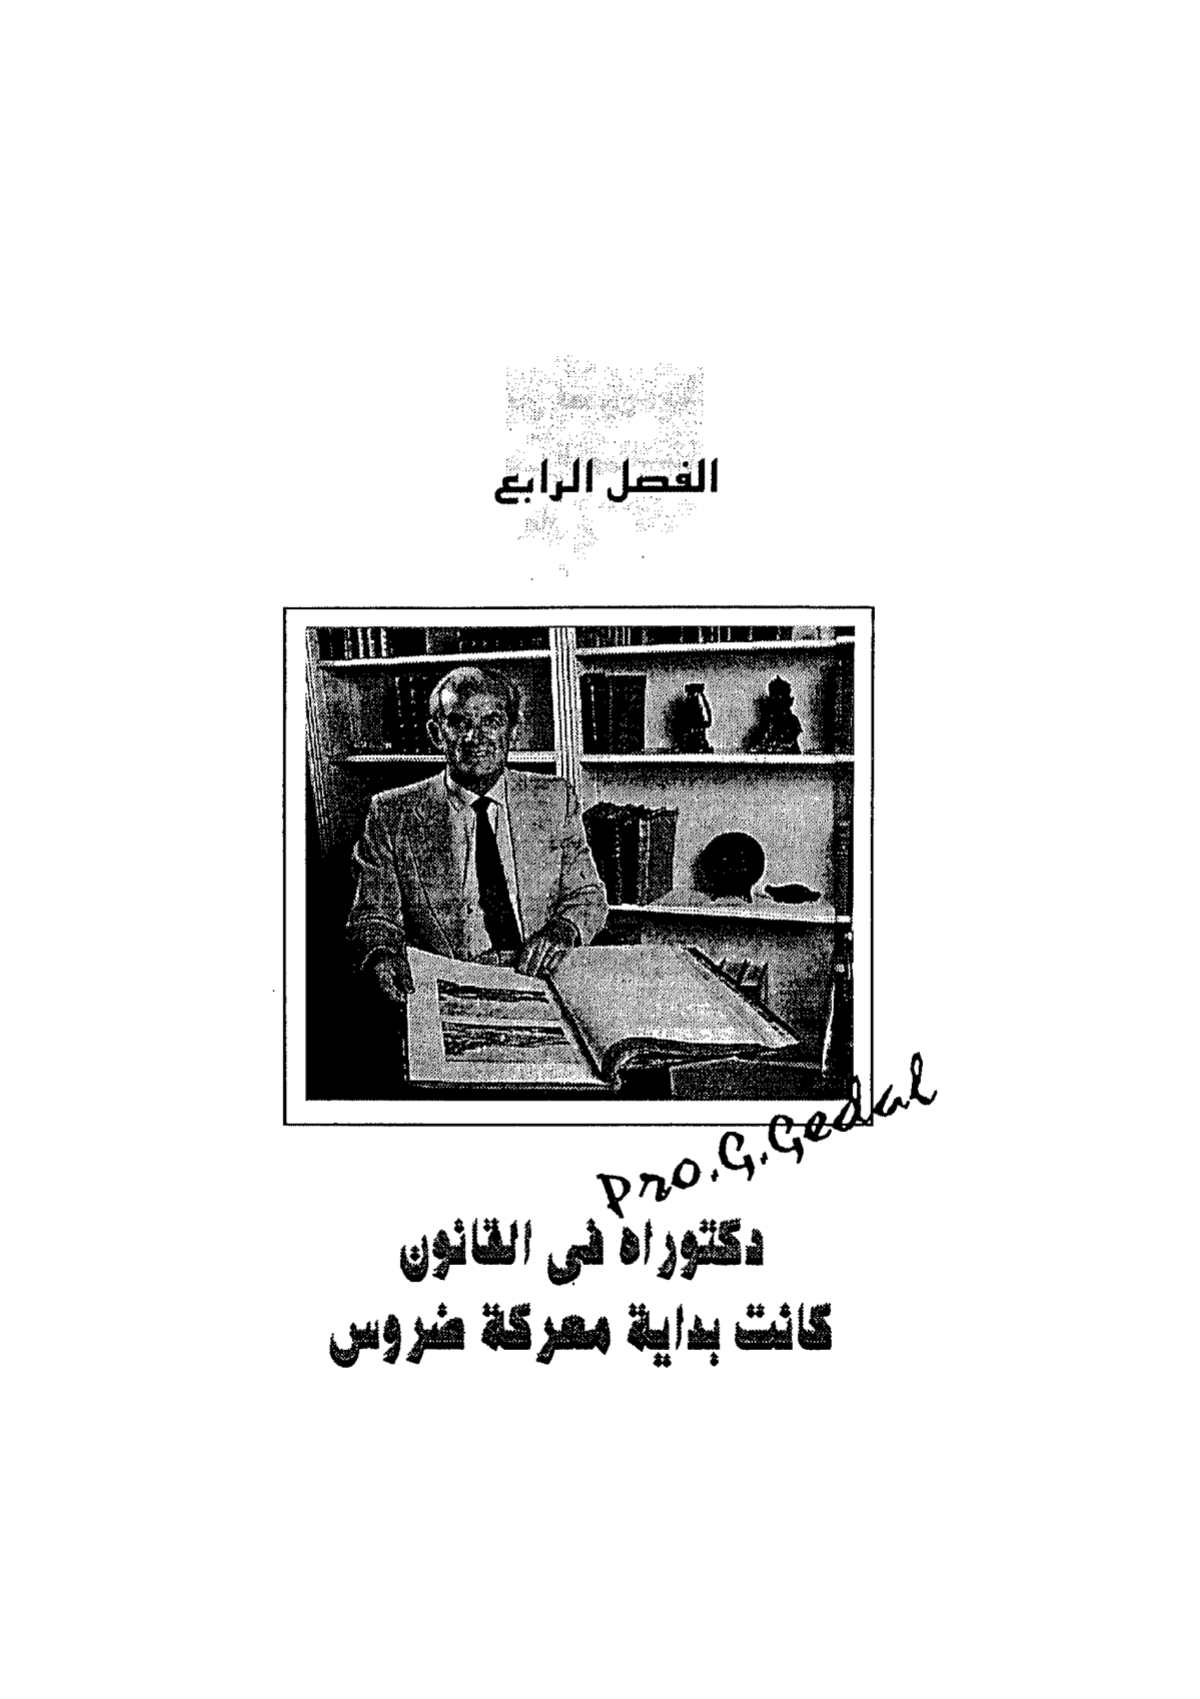 الفصل الرابع
pro.G.Gedal
دكتوراه فى القانون
كانت بداية معركة ضروس